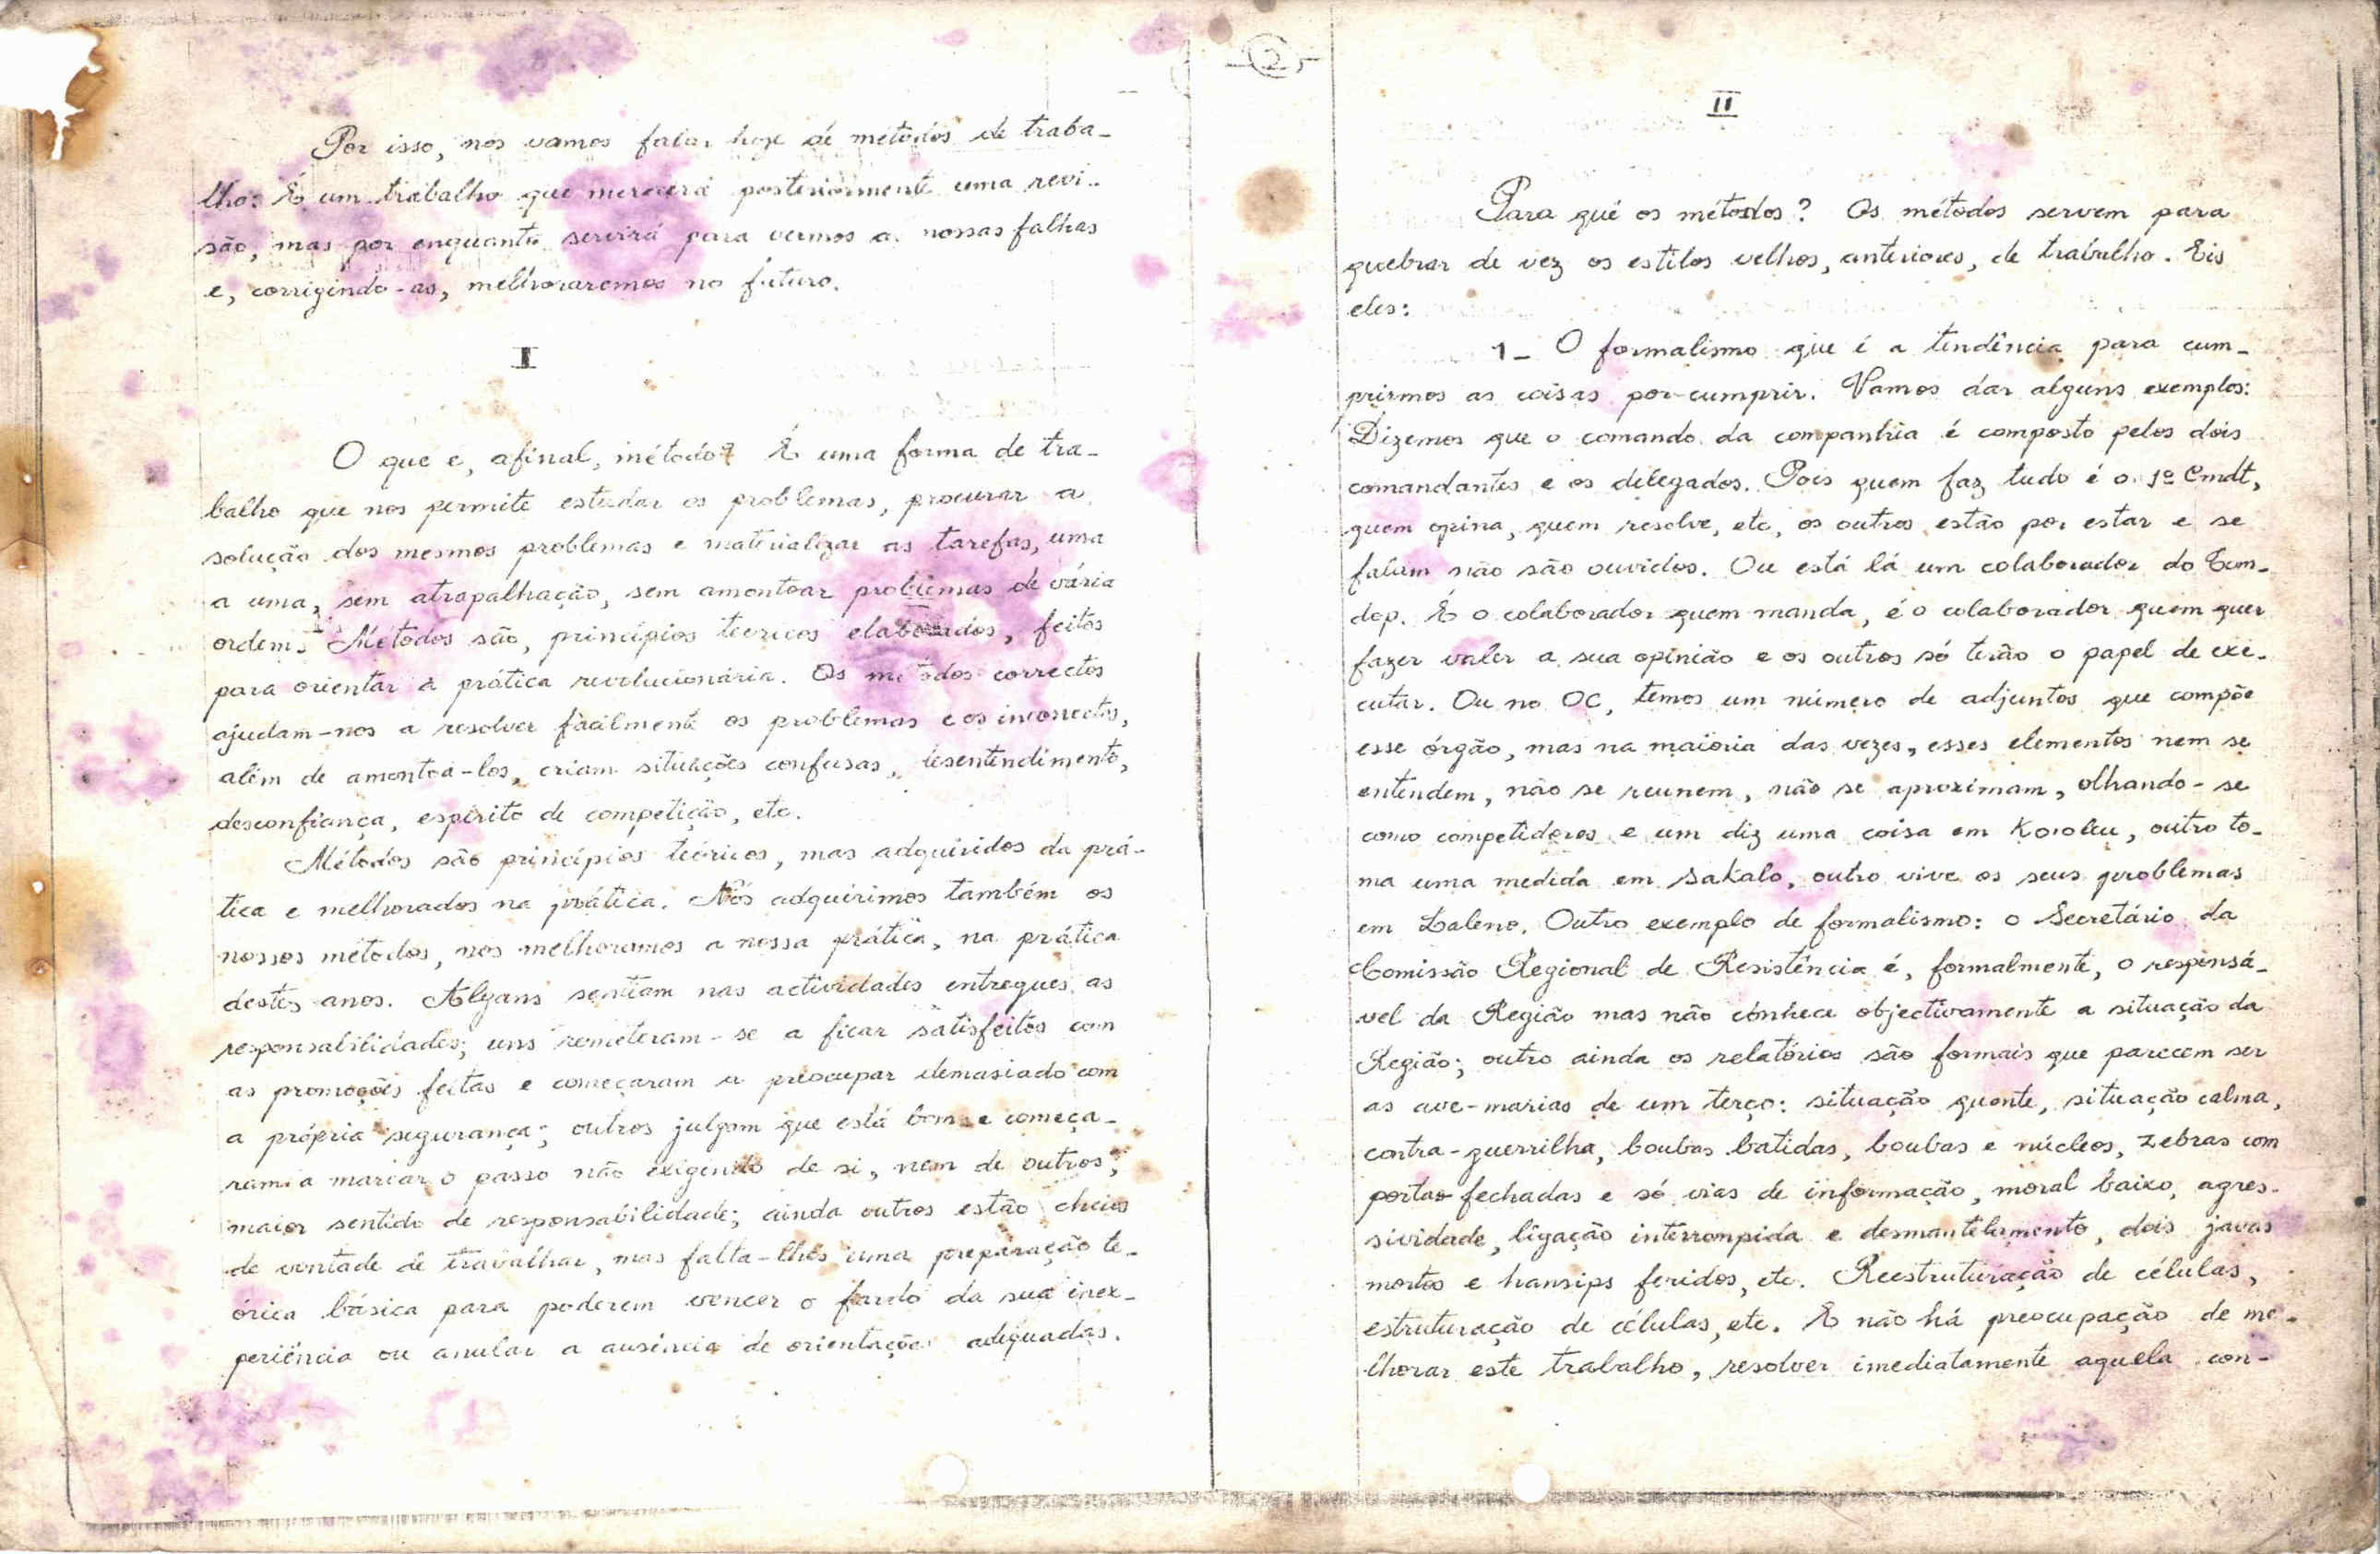 Por isso, nós vamos falar hoje de métodos de traba-
lho. É um trabalho que merecerá posteriormente uma revi-
são, mas por enquanto servirá para vermos as nossas falhas
e, corrigindo-as, melhoraremos no futuro.
I
O que e, afinal, método? É uma forma de tra-
balho que nos permite estudar os problemas, procurar a
solução dos mesmos problemas e materializar as tarefas, uma
a uma, sem atrapalhação, sem amontoar problemas de vária
ordem. Métodos são, princípios teóricos elaborados, feitos
para orientar a prática revolucionária. Os métodos correctos
ajudam-nos a resolver fàcilmente os problemas e os inconectos,
além de amontoá-los, criam situações confusas, desentendimento,
desconfiança, espírito de competição, etc.
Métodos são princípios teóricos, mas adquiridos da prá-
tica e melhorados na prática. Nós adquirimos também os
nossos métodos, nós melhoramos a nossa prática, na prática
destes anos. Alguns sentiam nas actividades entregues as
responsabilidades; uns remeteram-se a ficar satisfeitos com
as promoções feitas e começaram a preocupar demasiado com
a própria segurança; outros julgam que está bom e começa-
ram a marcar o passo não exigindo de si, nem de outros,
maior sentido de responsabilidade; ainda outros estão cheios
de vontade de travalhar, mas falta-lhes uma preparação te-
órica básica para poderem vencer o fardo da sua inex-
periência ou anular a ausência de orientações adequadas.
2
II
Para quê os métodos? Os métodos servem para
quebrar de vez os estilos velhos, anteriores, de trabalho. Eis
eles:
1- O formalismo que é a tendência para cum-
prirmos as coisas por-cumprir. Vamos dar alguns exemplos:
Dizemos que o comando da companhia é composto pelos dois
comandantes e os delegados. Pois quem faz tudo é o 1º Cmdt,
quem opina, quem resolve, etc, os outros estão por estar e se
falam não são ouvidos. Ou está lá um colaborador do Com-
dop. É o colaborador quem manda, é o colaborador quem quer
fazer valer a sua opinião e os outros só terão o papel de exe-
cutar. Ou no OC, temos um número de adjuntos que compõe
esse órgão, mas na maioria das vezes, esses elementos nem se
entendem, não se reunem, não se aproximam, olhando-se
como competidores e um diz uma coisa em Kororleu, outro to-
ma uma medida em Sakalo, outro vive os seus problemas
em Laleno. Outro exemplo de formalismo: o Secretário da
Comissão Regional de Resistência é, formalmente, o responsá-
vel da Região mas não cónhece objectivamente a situação da
Região; outro ainda os relatórios são formais que parecem ser
as ave-marias de um terço: situação quente, situação calma,
contra-guerrilha, boubas batidas, boubas e núcleos, zebras com
portas fechadas e só vias de informação, moral baixo, agres-
sividade, ligação interrompida e desmantelamento, dois javas
mortos e hansips feridos, etc. Reestruturação de células,
estruturação de células, etc. E não há preocupação de me-
lhorar este trabalho, resolver imediatamente aquela con-